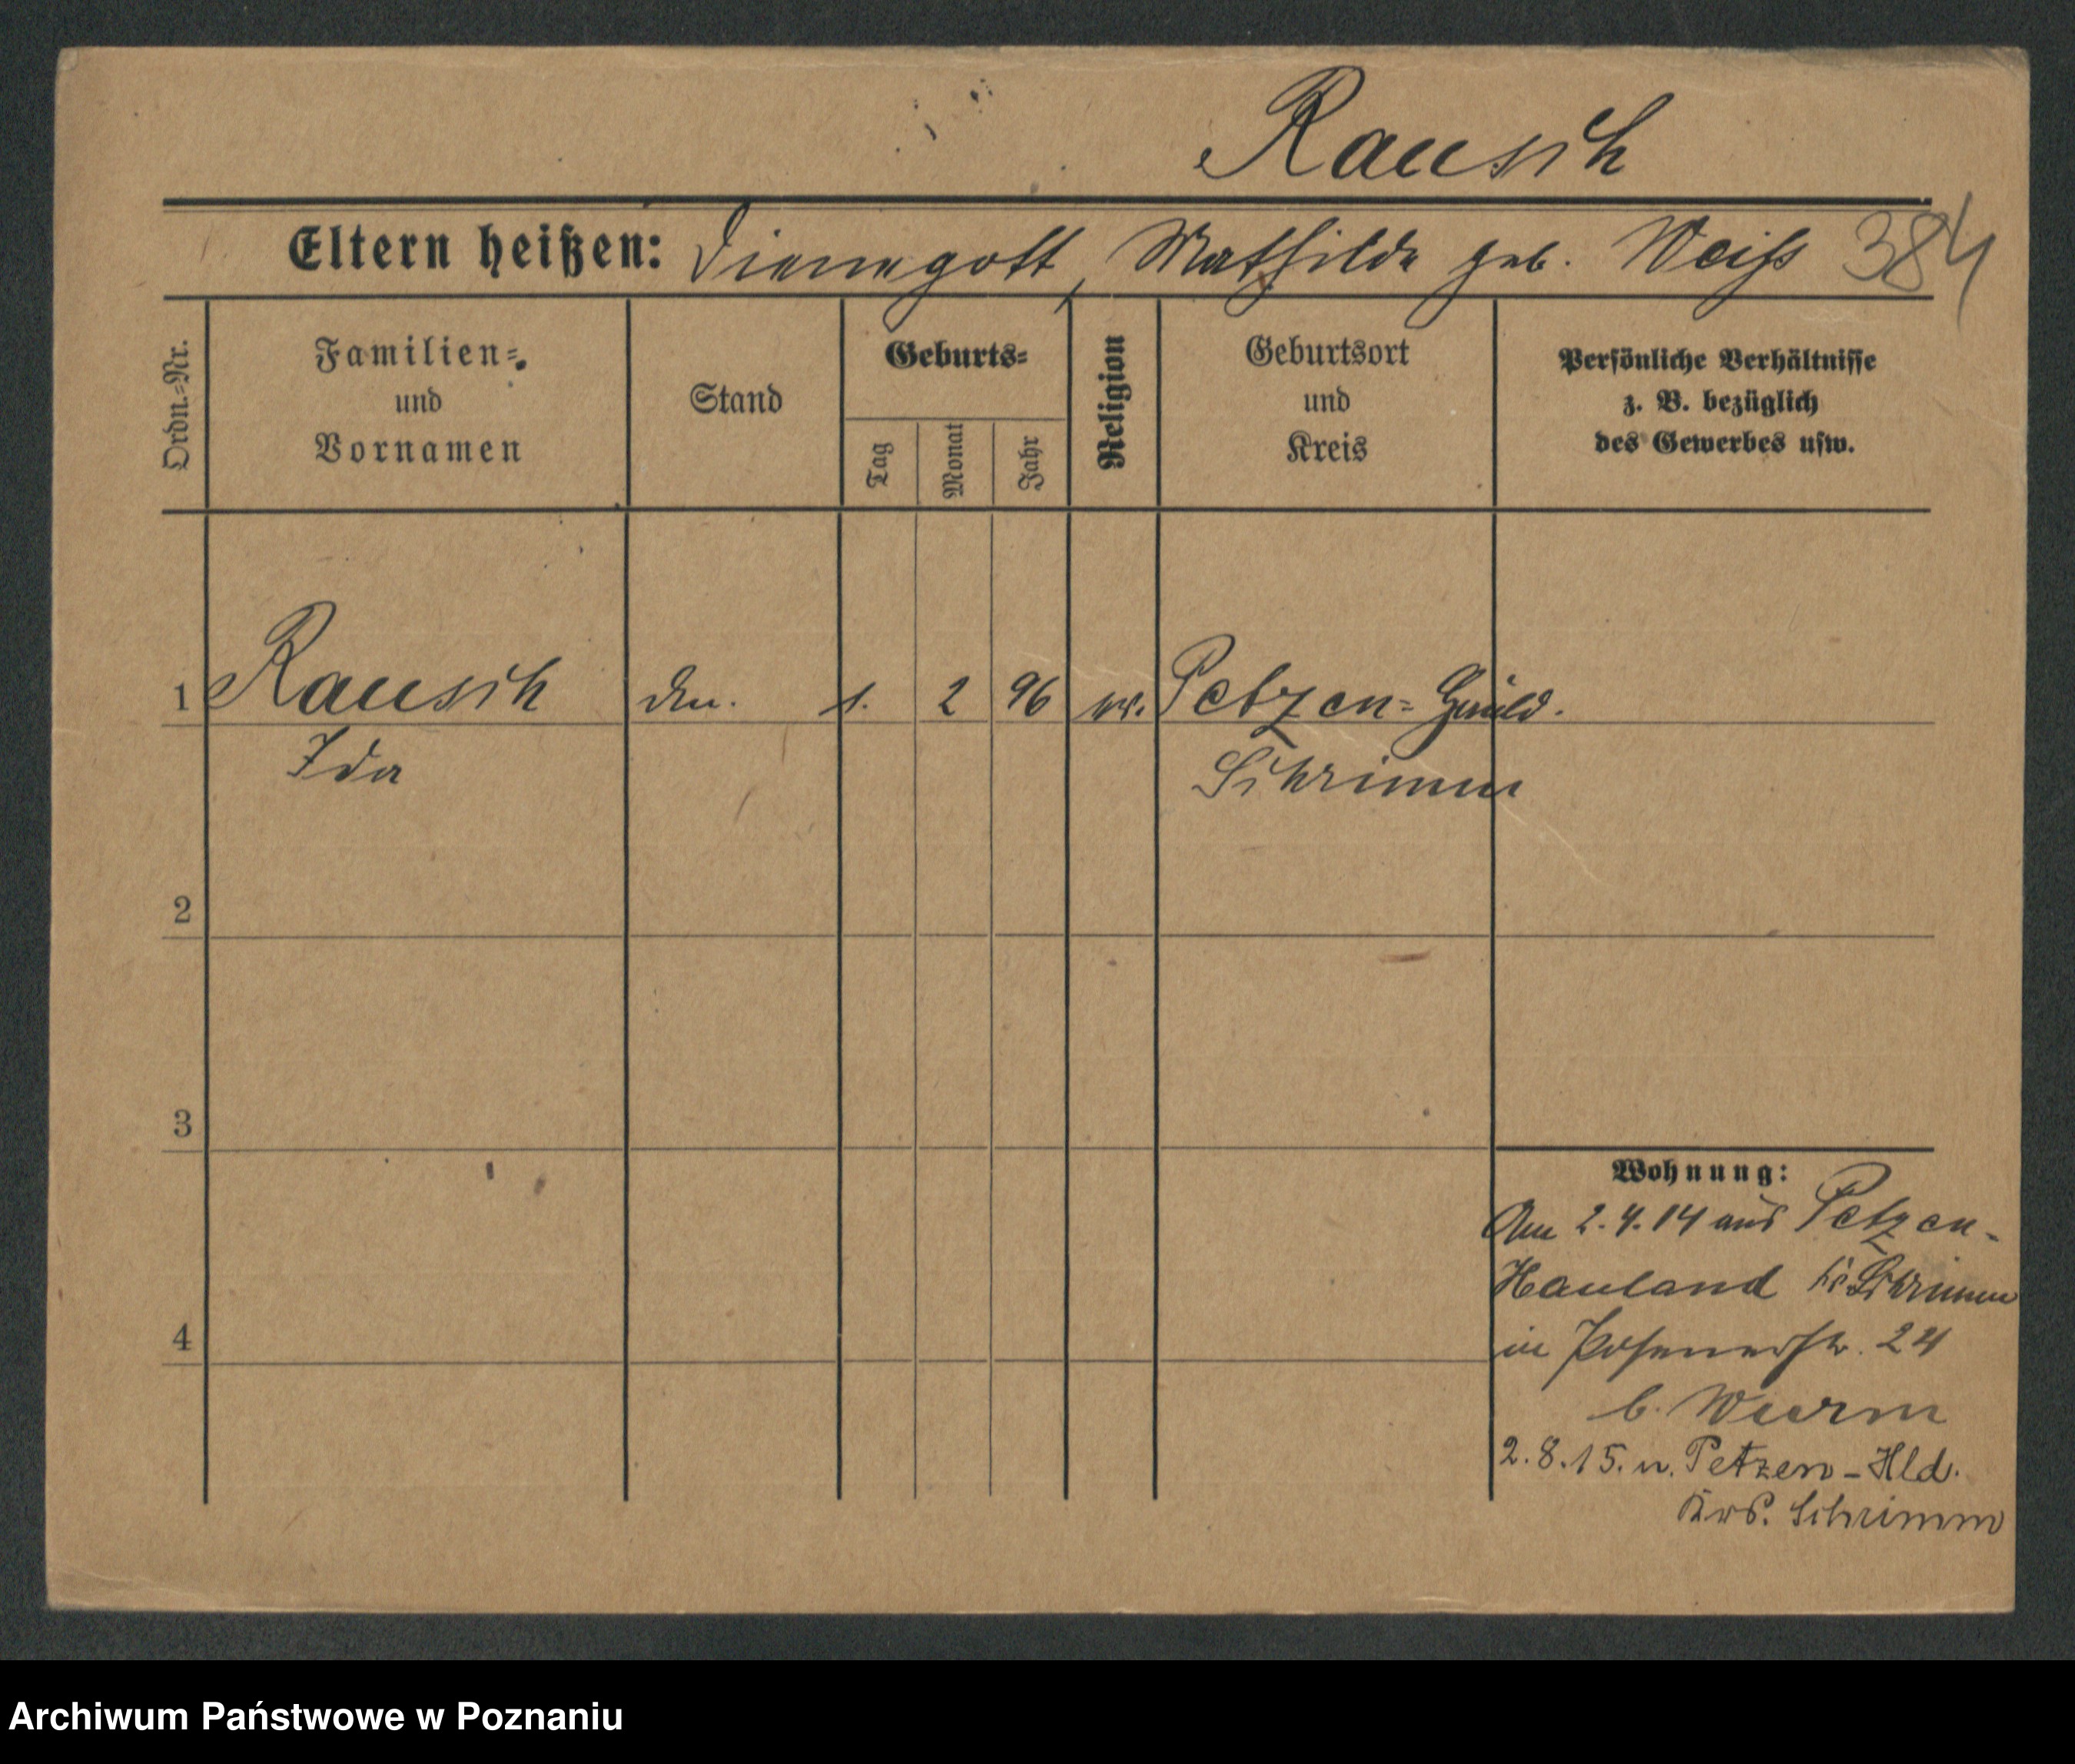 Rausch
Eltern heißen: Dienegott, Mathilde geb. Weiß 384
Ordn.-Nr.
Familien- und Vornamen
Stand
Geburts-
Tag
Monat
Jahr
Religion
Geburtsort und Kreis
Persönliche Verhältnisse
z. B. bezüglich
des Gewerbes usw.
1 Rausch 1. 2 96 Petzen-
Ida Schrimm
2
3
4
Wohnung:
Am 2.4.14 aus Petzen-
Hauland Kr. Schrimm
in Posenerstr. 24
b. Wurm
2.8.15. n. Petzen-Hld.
Krs. Schrimm
Archiwum Państwowe w Poznaniu